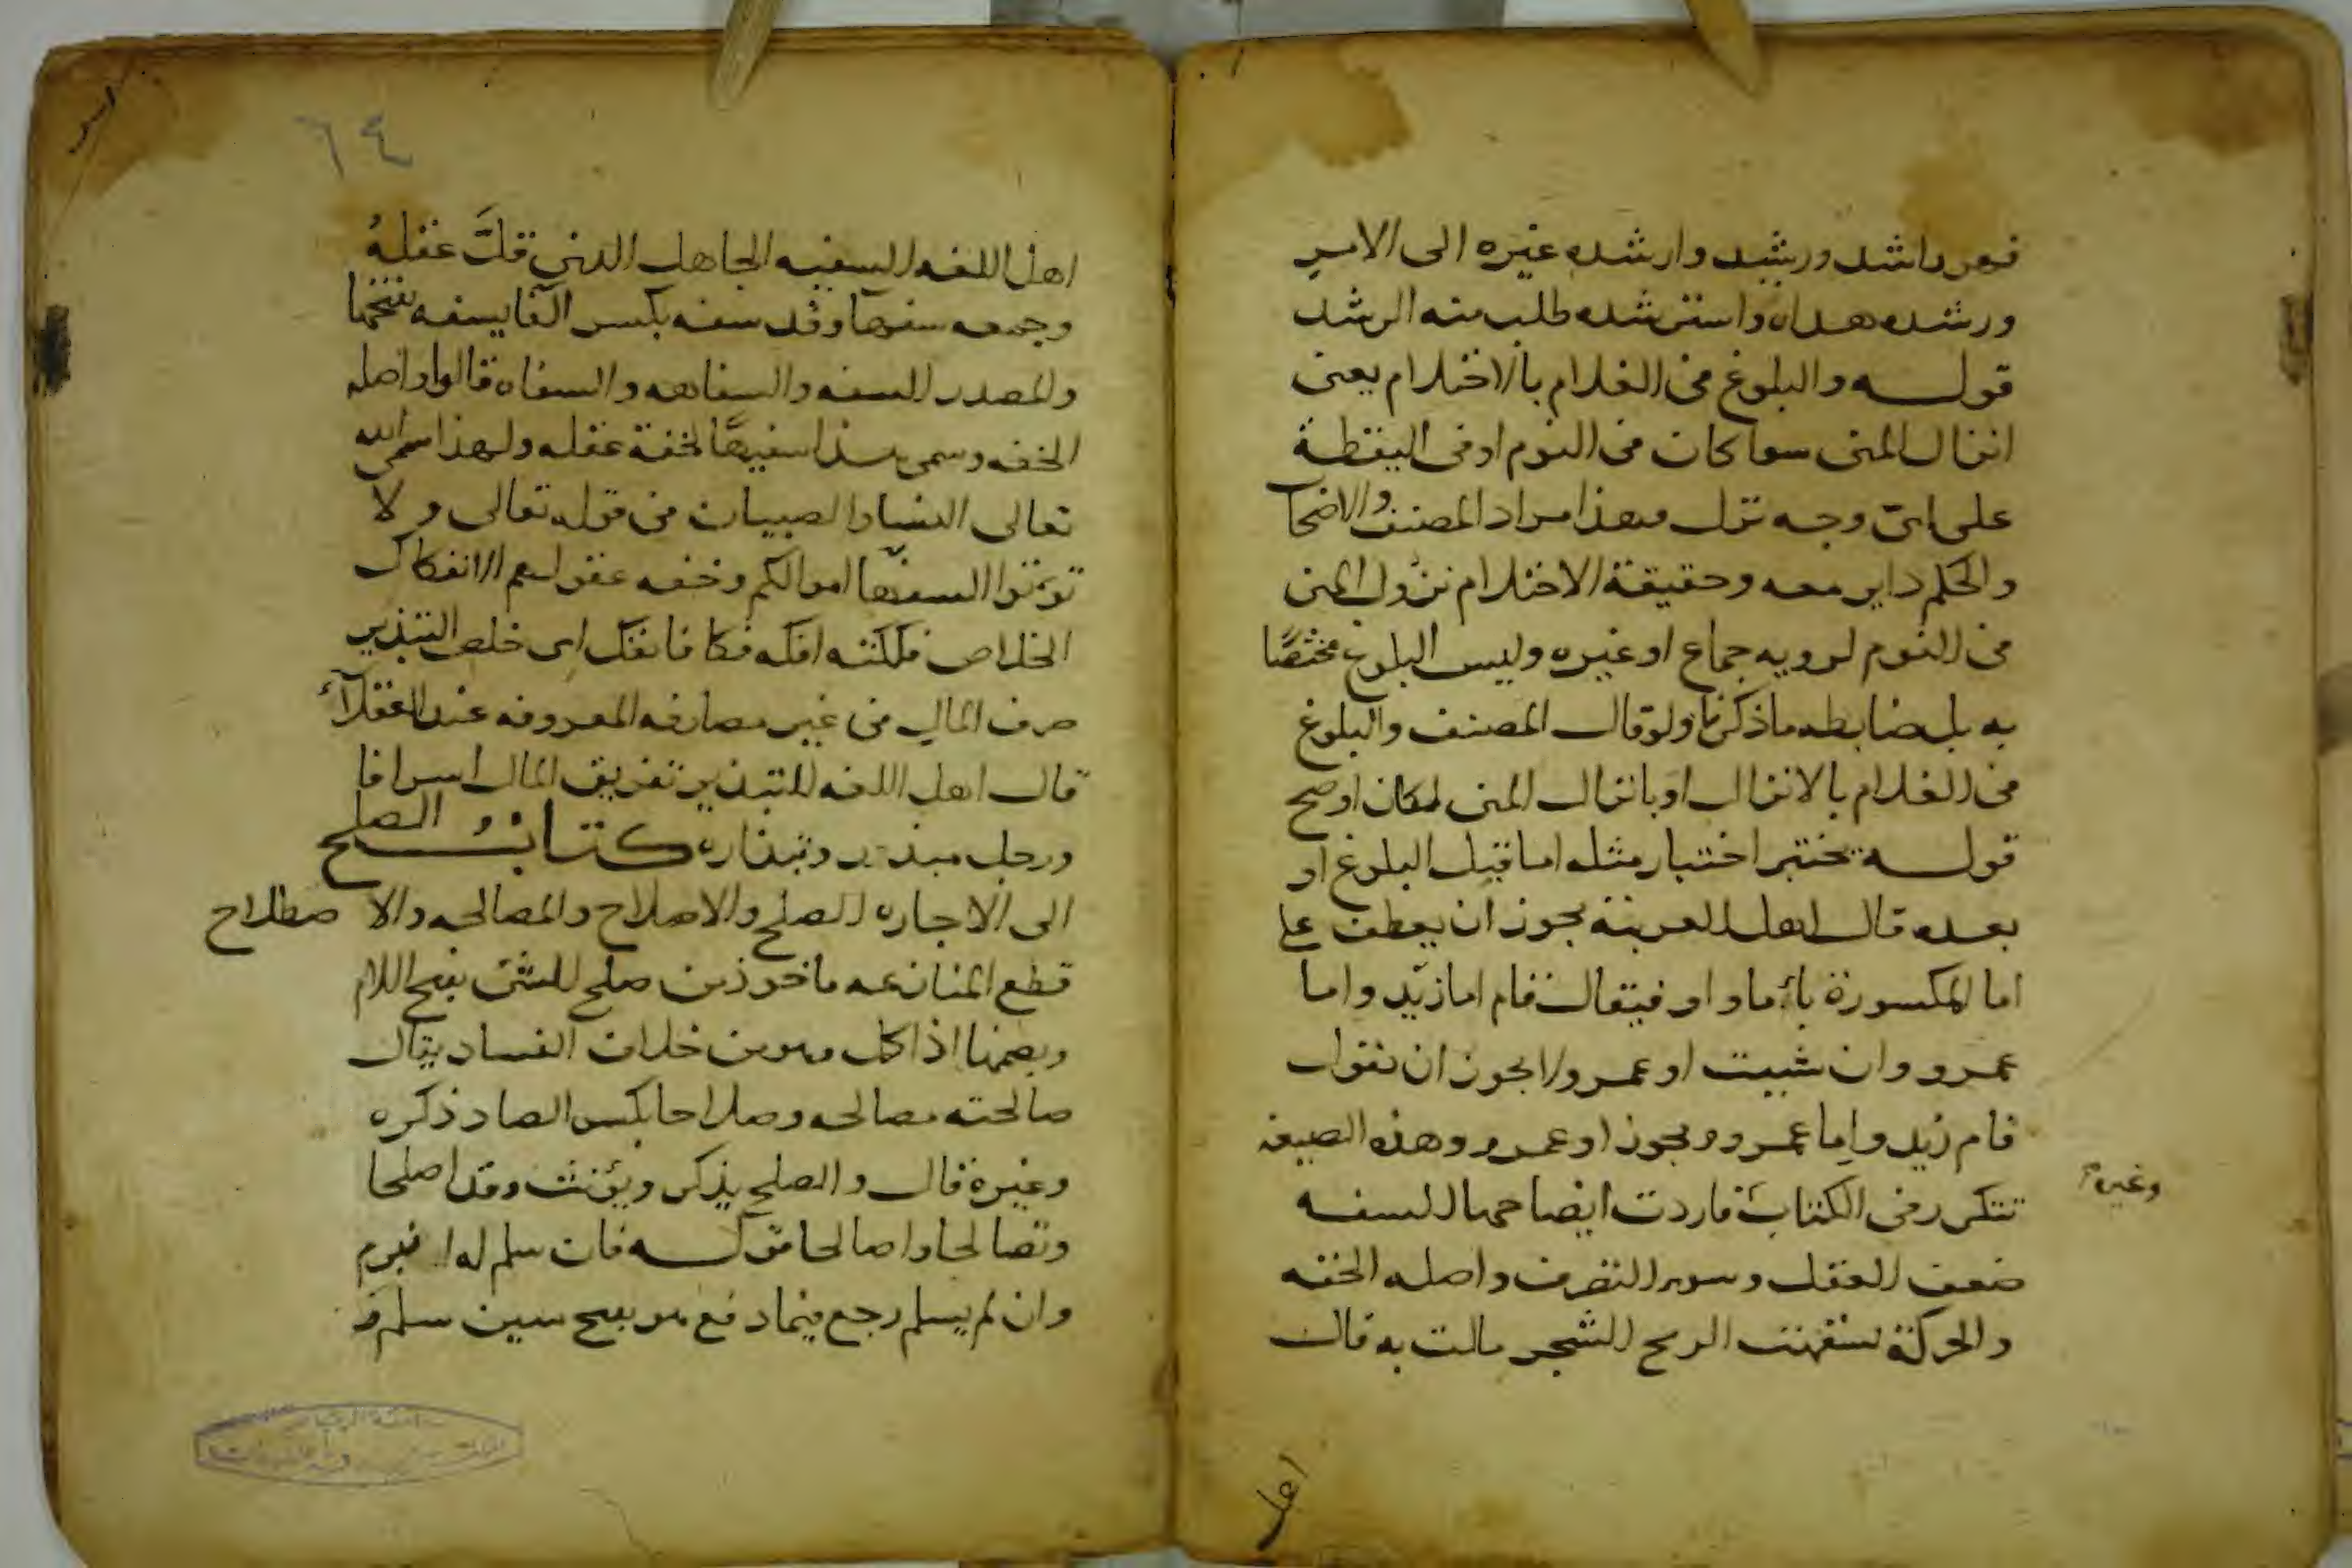 فهو راشد ورشيد وارشده غيره الى الامر
ورشده هداه واسترشده طلب منه الرشد
قوله والبلوغ فى الغلام بالاحتلام يعنى
انزال المنى سوا كان فى النوم او فى اليقظة
على اىّ وجه نزل فهذا مراد المصنف والاصحا
والحكم داير معه وحقيقة الاحتلام نزول المنى
فى النوم لرويه جماع او غيره وليس البلوغ مختصًا
به بل ضابطه ماذكرنا ولو قال المصنف والبلوغ
فى الغلام بالانزال او بانزال المنى لكان اوضح
قوله يختبر اختبار مثله اما قبل البلوغ او
بعده قال اهل العربية يجوز ان يعطف على
اما المكسورة بأما و او فيقال قام اما زيد واما
عمرو وان شيت او عمرو ولا يجوز ان تقول
قام زيد واما عمرو ويجوز او عمرو وهذه الصيغه
تتكرر فى الكتاب فاردت ايضاحها السفه
وغيره
ضعف العقل وسوء التصرف واصله الخفه
والحركة تسفهت الريح الشجر مالت به قال
اهل
٦٤
اهل اللغه السفيه الجاهل الذي قلَّ عقلهُ
وجمعه سفهآ وقد سفه بكسر الفا يسفه بفتحها
والمصدر السفه والسفاهه والسفاه قالوا واصله
الخفه وسمى هذا سفيهًا لخفة عقله ولهذا سمى الله
تعالى النسا والصبيان فى قوله تعالى ولا
توتوا السفهآ اموالكم وخفه عقولهم الانفكاك
الخلاص فككته افكه فكا فانفك اى خلص التبذير
صرف المال فى غير مصارفه المعروفه عند العقلآء
قال اهل اللغه التبذير تفريق المال اسرافا
ورجل مبذر وتبذاره كتابُ الصلح
الى الاجاره الصلح والاصلاح والمصالحه والاصطلاح
قطع المنازعه ماخوذ من صلح الشئ بفتح اللام
وبضمها اذا كمل وهو من خلاف الفساد يقال
صالحته مصالحه وصلاحا بكسر الصاد ذكره
وغيرة قال والصلح يذكر ويؤنث وقد اصطلحا
وتصالحا واصالحا قوله فان سلم له انبرم
وان لم يسلم رجع فيما دفع هو بفتح سين سلم و